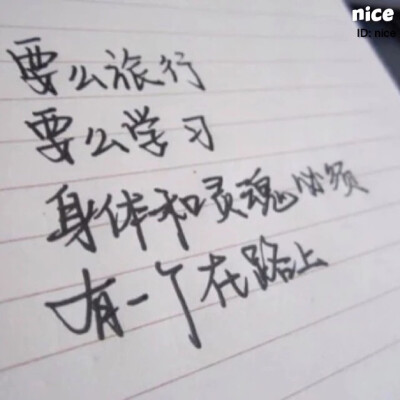 nice
ID: nice
要么旅行
要么学习
身体和灵魂必须
有一个在路上